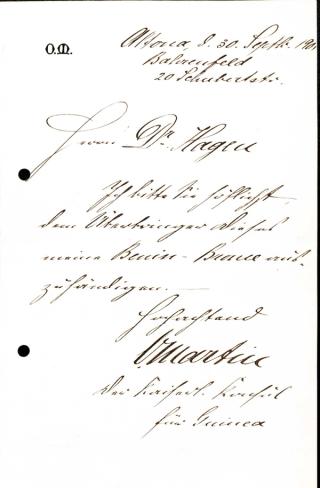 O.M.
Altona, d. 30. Septb. 1901
Bahrenfeld
20 Schubertstr.
Herrn Dr. Hagen
Ich bitte Sie höflichst,
dem Überbringer dieses
meine Benin-Bronce aus-
zuhändigen.
Hochachtend
O. Martin
Der Kaiserl. Konsul
für Guinea